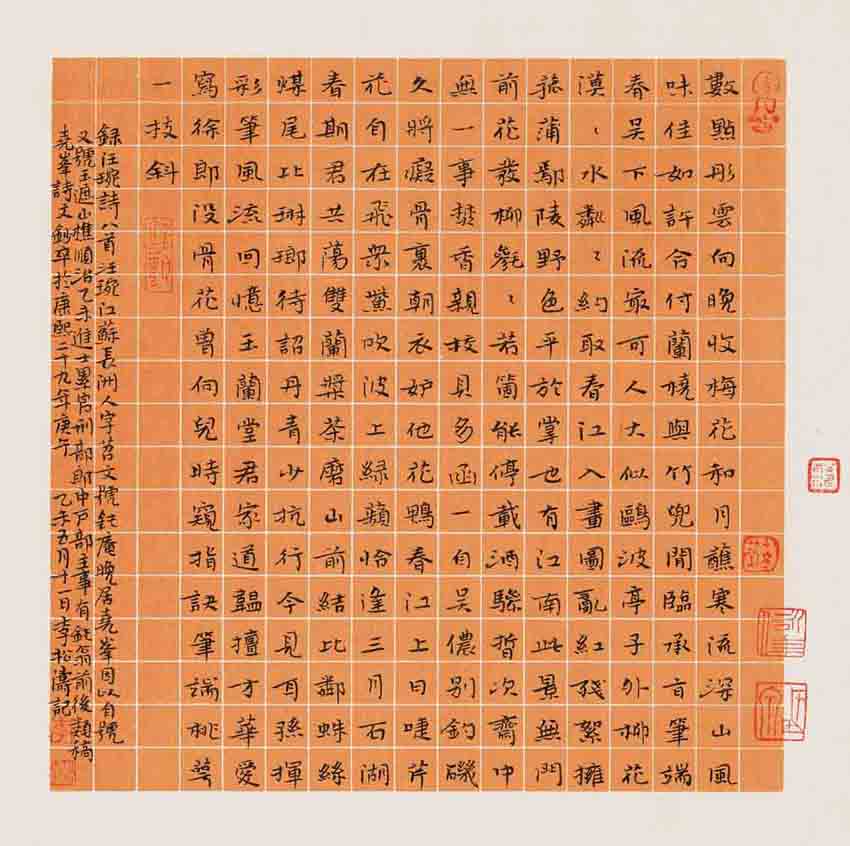 數點彤雲向晚收梅花和月蘸寒流深山風
味佳如許合付蘭橈與竹兜閒臨承旨筆端
春吴下風流最可人大似鷗波亭子外柳花
漠〻水粼〻約取春江入畫圖亂紅殘絮擁
菰蒲鄢陵野色平於掌也有江南此景無門
前花發柳毿〻若箇能停載酒驂晳次齋中
無一事焚香親校貝多函一自吴儂別釣磯
久將癡骨裹朝衣妒他花鴨春江上日唼芹
花自在飛衆薰吹波上綠蘋恰逢三月石湖
春期君共蕩雙蘭槳茶磨山前結比鄰蛛絲
煤尾比琳瑯待詔丹青少抗行今見耳孫揮
彩筆風流回憶玉蘭堂君家道韞擅才華愛
寫徐郎没骨花曾向兒時窺指訣筆端桃萼
一技斜
録汪琬詩八首汪琬江蘇長洲人字苕文號鈍庵晚居堯峯因以自號
又號玉遮山樵順治乙未進士累官刑部郎中戶部主事有鈍翁前後類稿
堯峯詩文鈔卒於康熙二十九年庚午 乙未五月十一日李松濤記